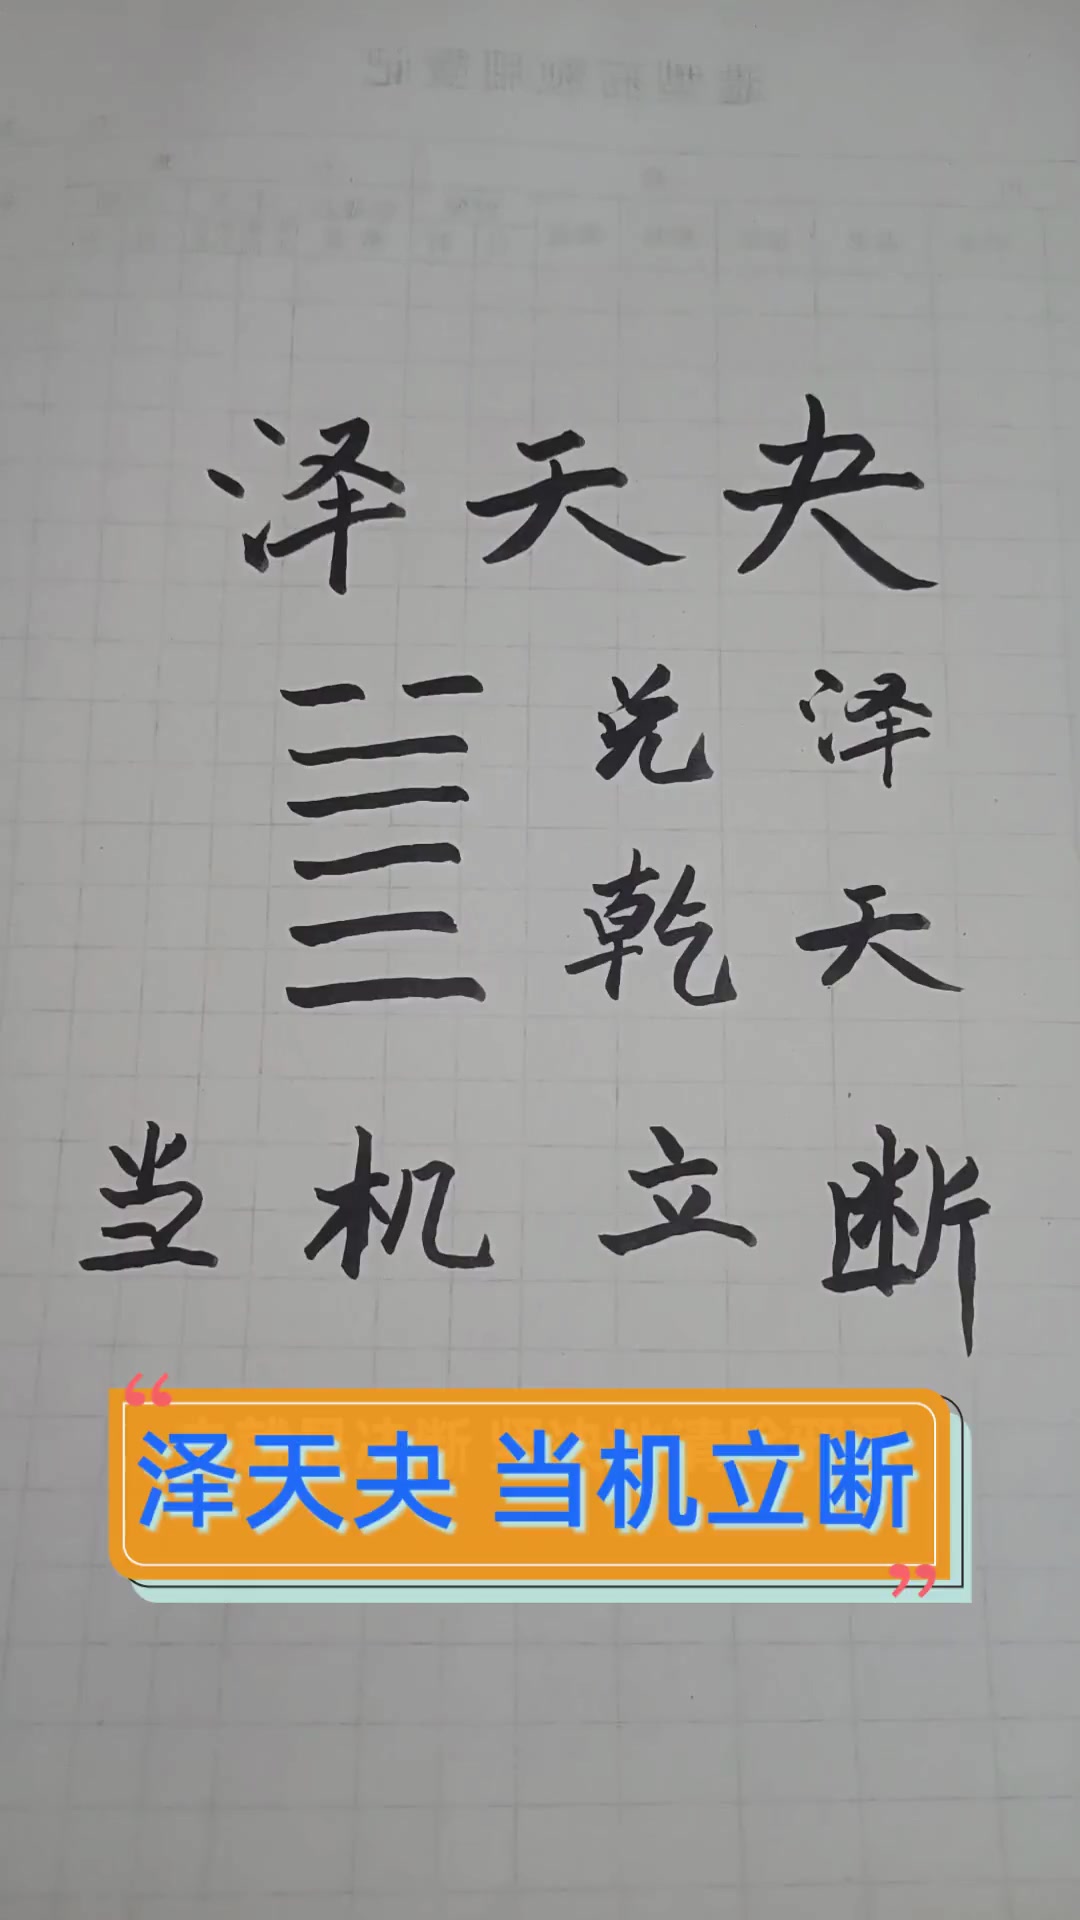 泽天夬
兑 泽
乾 天
当机立断
“泽天夬 当机立断”